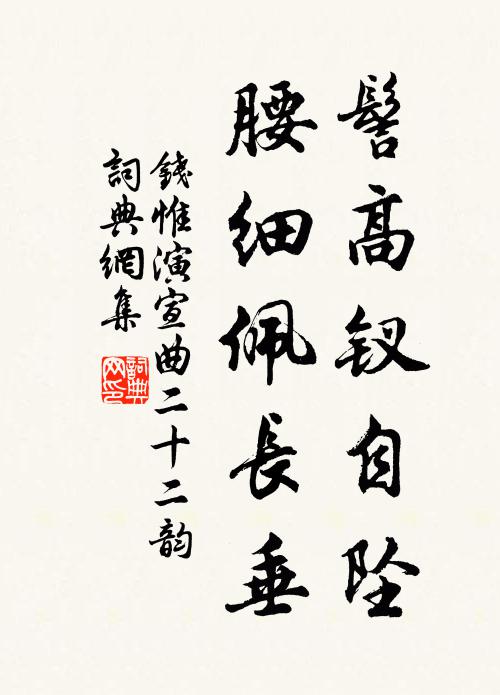 髻高釵自墜
腰細佩長垂
錢惟演宣曲二十二韵
詞典網集
詞典网印